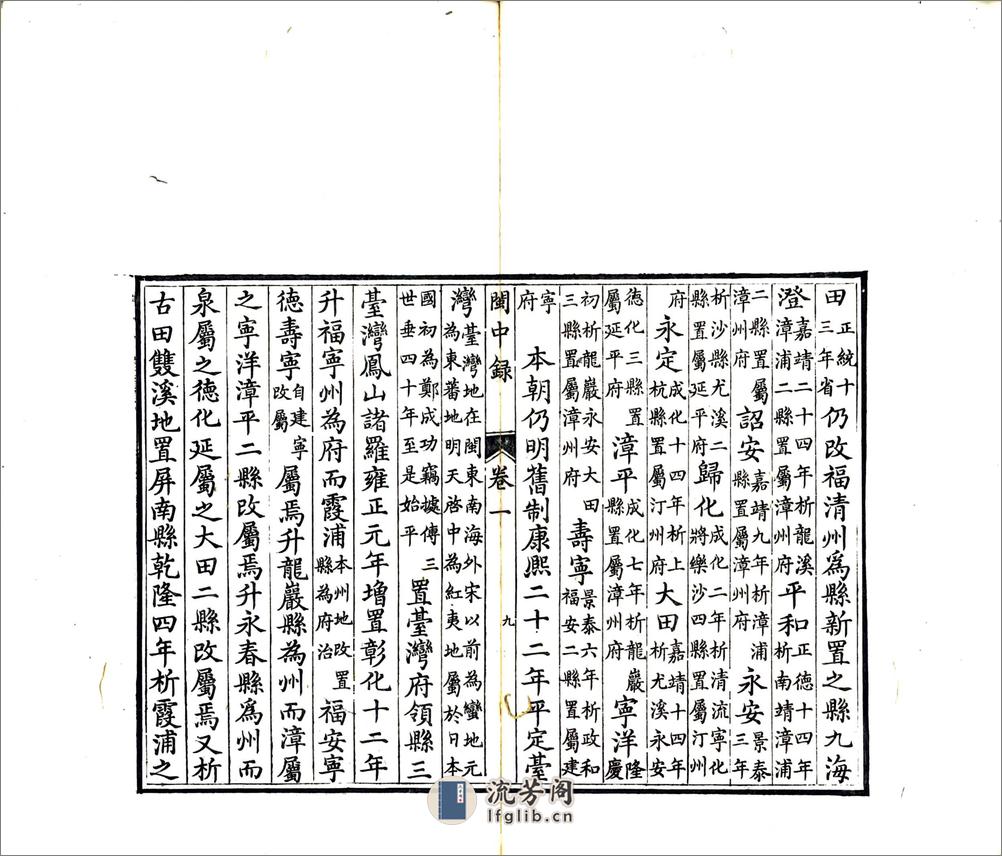 田正統十三年省仍改福清州爲縣新置之縣九海
澄嘉靖二十四年析龍溪漳浦二縣置屬漳州府平和正德十四年析南靖漳浦
二縣置屬漳州府詔安嘉靖九年析漳浦縣置屬漳州府永安景泰三年
析沙縣尤溪二縣置屬延平府歸化成化二年析清流寧化將樂沙四縣置屬汀州
府永定成化十四年析上杭縣置屬汀州府大田嘉靖十四年析尤溪永安
德化三縣置屬延平府漳平成化七年析龍巖縣置屬漳州府寧洋隆慶
初析龍巖永安大田三縣置屬漳州府壽寧景泰六年析政和福安二縣置屬建
寧府本朝仍明舊制康熙二十二年平定臺
閩中録 卷一 九
灣臺灣地在閩東南海外宋以前為蠻地元為東蕃地明天啓中為紅夷地屬於日本
國初為鄭成功竊據傳三世垂四十年至是始平置臺灣府領縣三
臺灣鳳山諸羅雍正元年增置彰化十二年
升福寧州為府而霞浦本州地改置縣為府治福安寧
德壽寧自建寧改屬屬焉升龍巖縣為州而漳屬
之寧洋漳平二縣改屬焉升永春縣爲州而
泉屬之德化延屬之大田二縣改屬焉又析
古田雙溪地置屏南縣乾隆四年析霞浦之
流芳阁
lfglib.cn